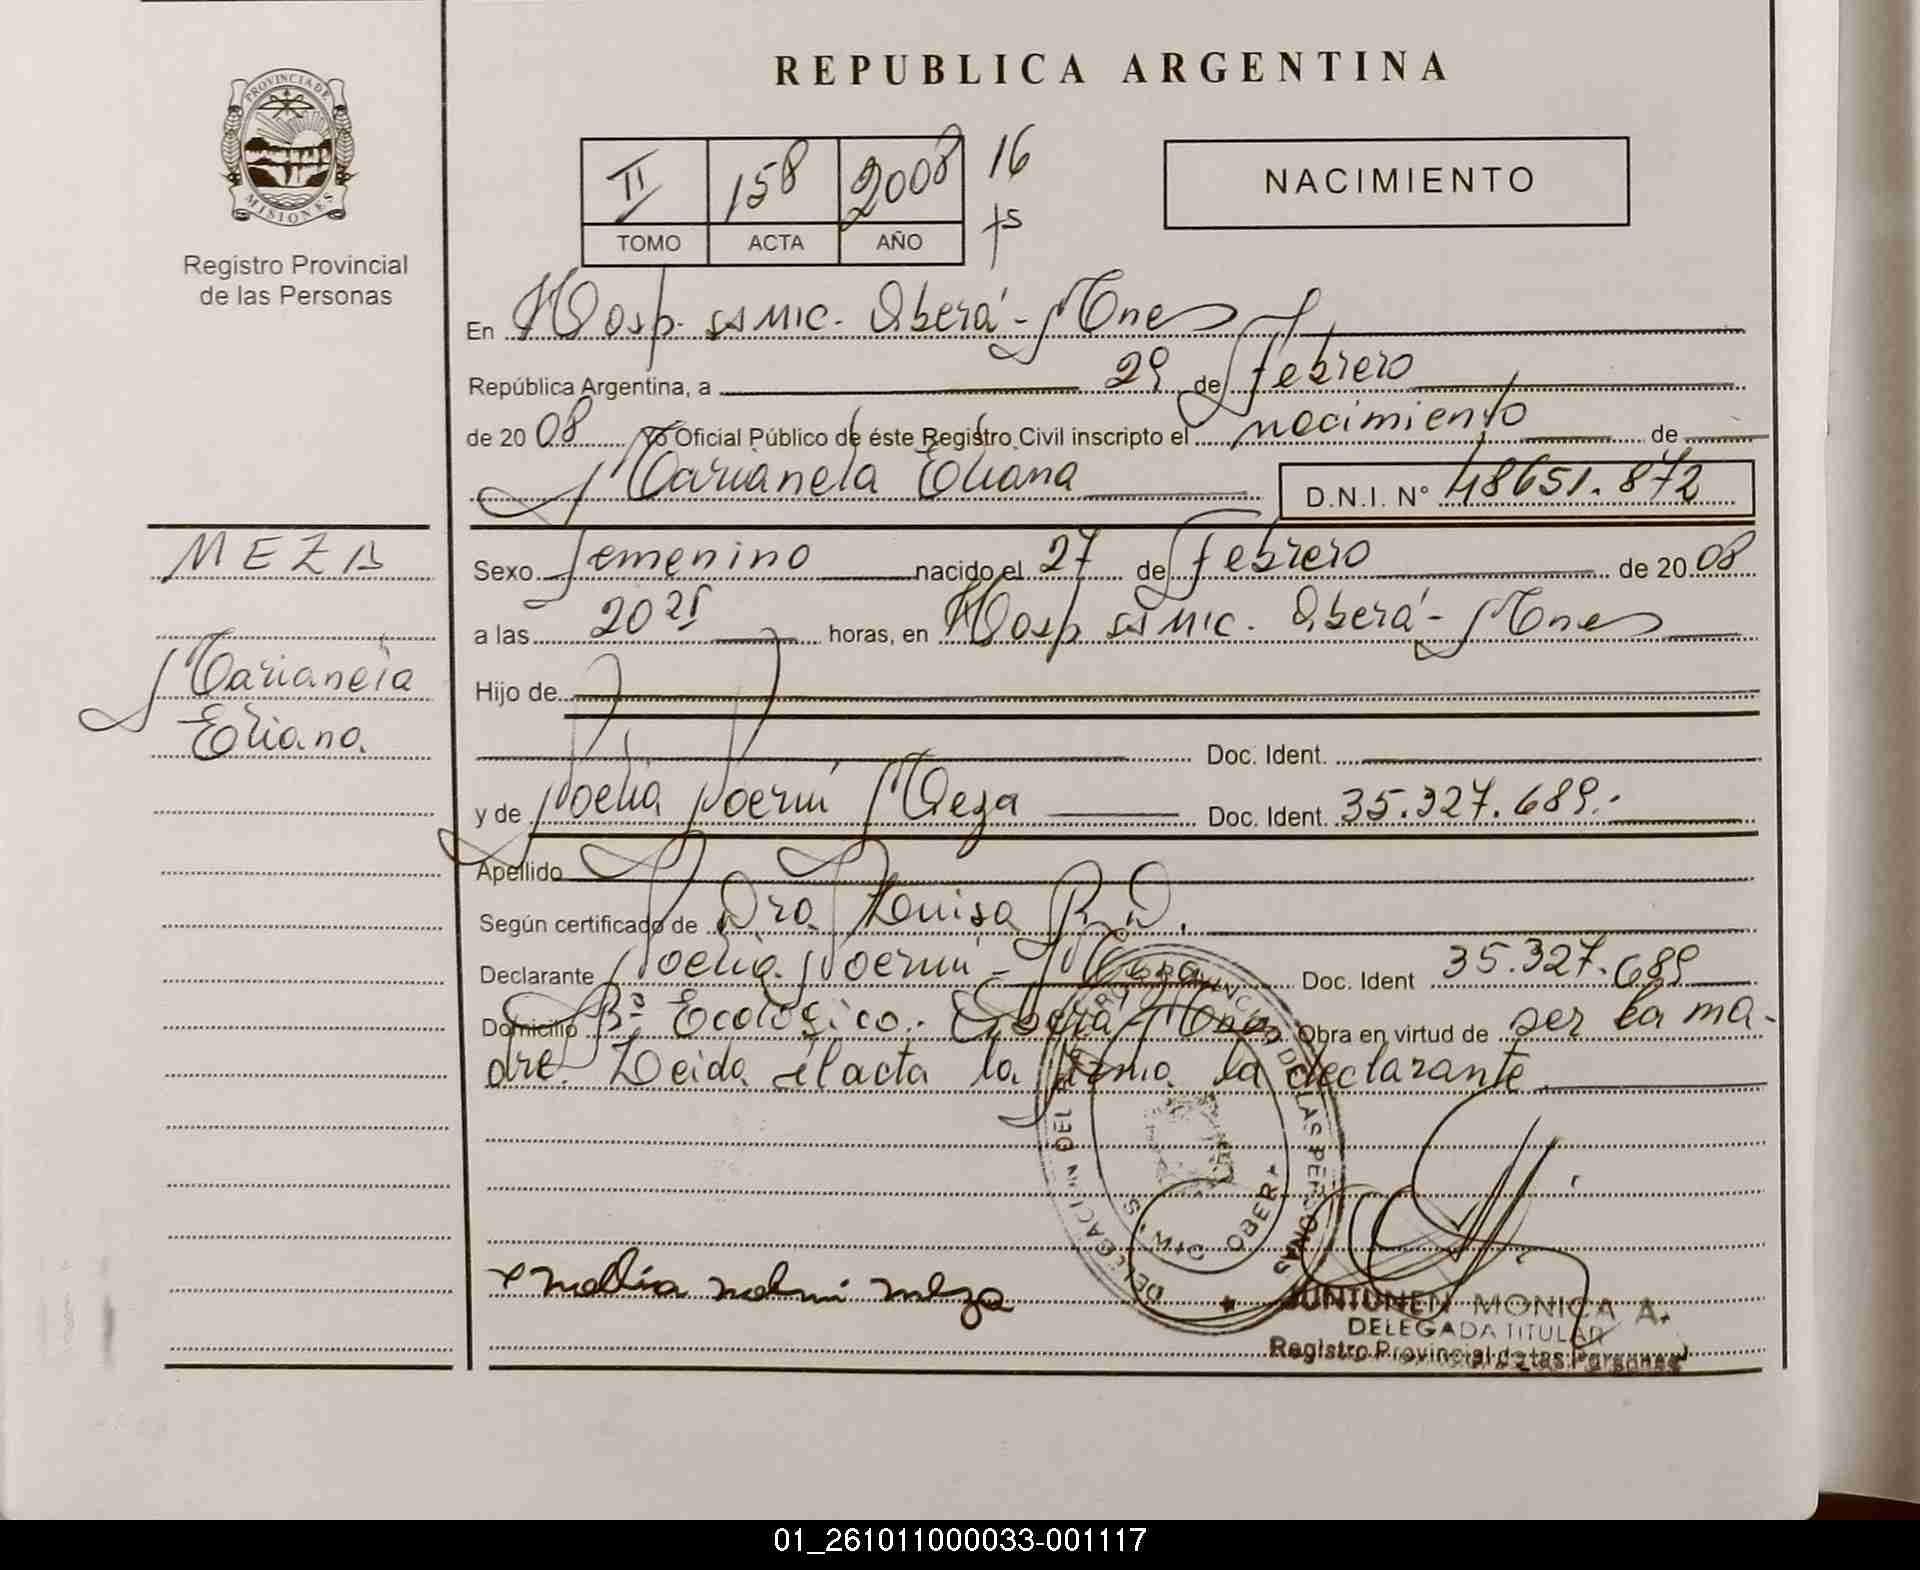 REPUBLICA ARGENTINA
PROVINCIA DE
MISIONES
Registro Provincial
de las Personas
II 158 2008 16
TOMO ACTA AÑO fs
NACIMIENTO
En Hosp. SAMIC. Oberá - Mnes
República Argentina, a 29 de febrero
de 2008 Yo Oficial Público de éste Registro Civil inscripto el nacimiento de
Marianela Eliana D.N.I. N° 48651.872
MEZA
Marianela
Eliana
Sexo femenino nacido el 27 de febrero de 2008
a las 20 25 horas, en Hosp SAMIC. Oberá - Mnes
Hijo de
Doc. Ident.
y de Noelia Noemí Meza Doc. Ident. 35.327.689.-
Apellido
Según certificado de Dra Luisa R. D.
Declarante Noelia Noemí - Meza Doc. Ident 35.327.689
Domicilio Bº Ecológico. Oberá - Mnes Obra en virtud de ser la ma-
dre. Leida el acta la firma la declarante
DELEGACION DEL REGISTRO PROVINCIAL DE LAS PERSONAS
OBERA
noelia noemi meza
JUNTUNEN MONICA A.
DELEGADA TITULAR
Registro Provincial de las Personas
01_261011000033-001117